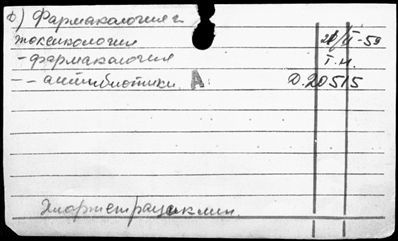 б) Фармакология и
токсикология
- фармакология
-- антибиотики. А
/II-59
Т.Н.
Д.20515
Хлортетрациклин.